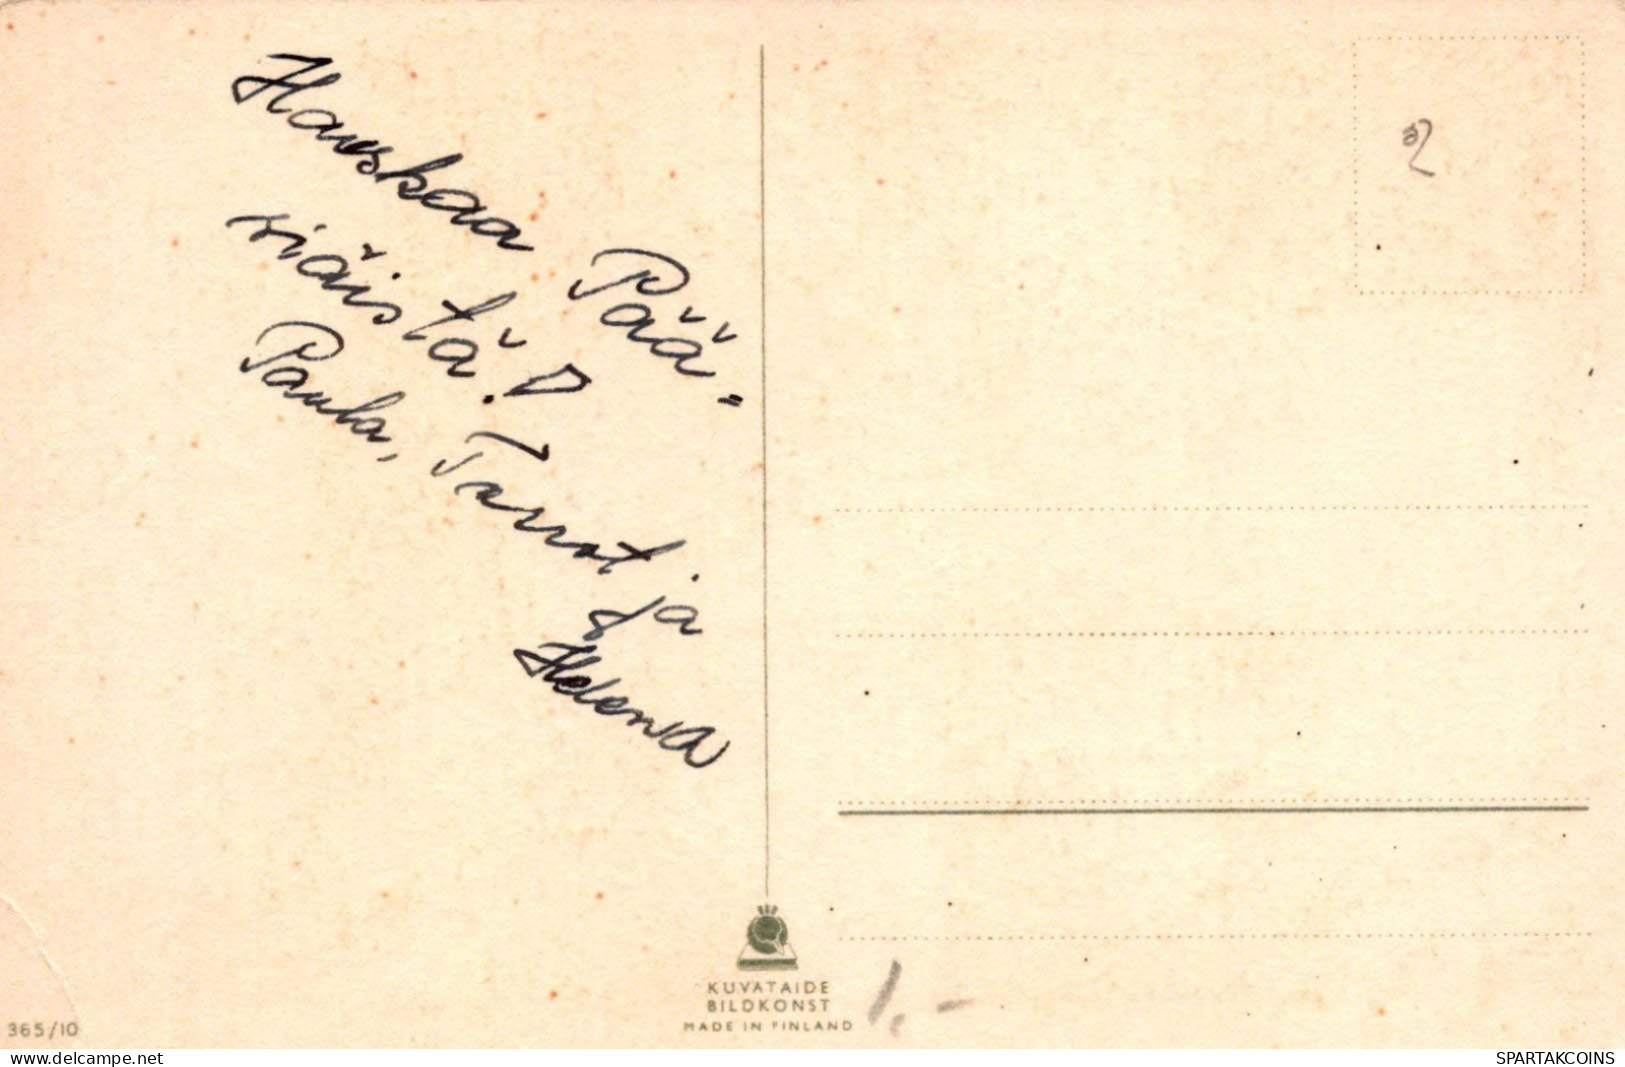 Hauskaa Pää=
siäistä!
Paula, Taunot ja
Helena
1.-
KUVATAIDE
BILDKONST
MADE IN FINLAND
365/10
www.delcampe.net
SPARTAKCOINS